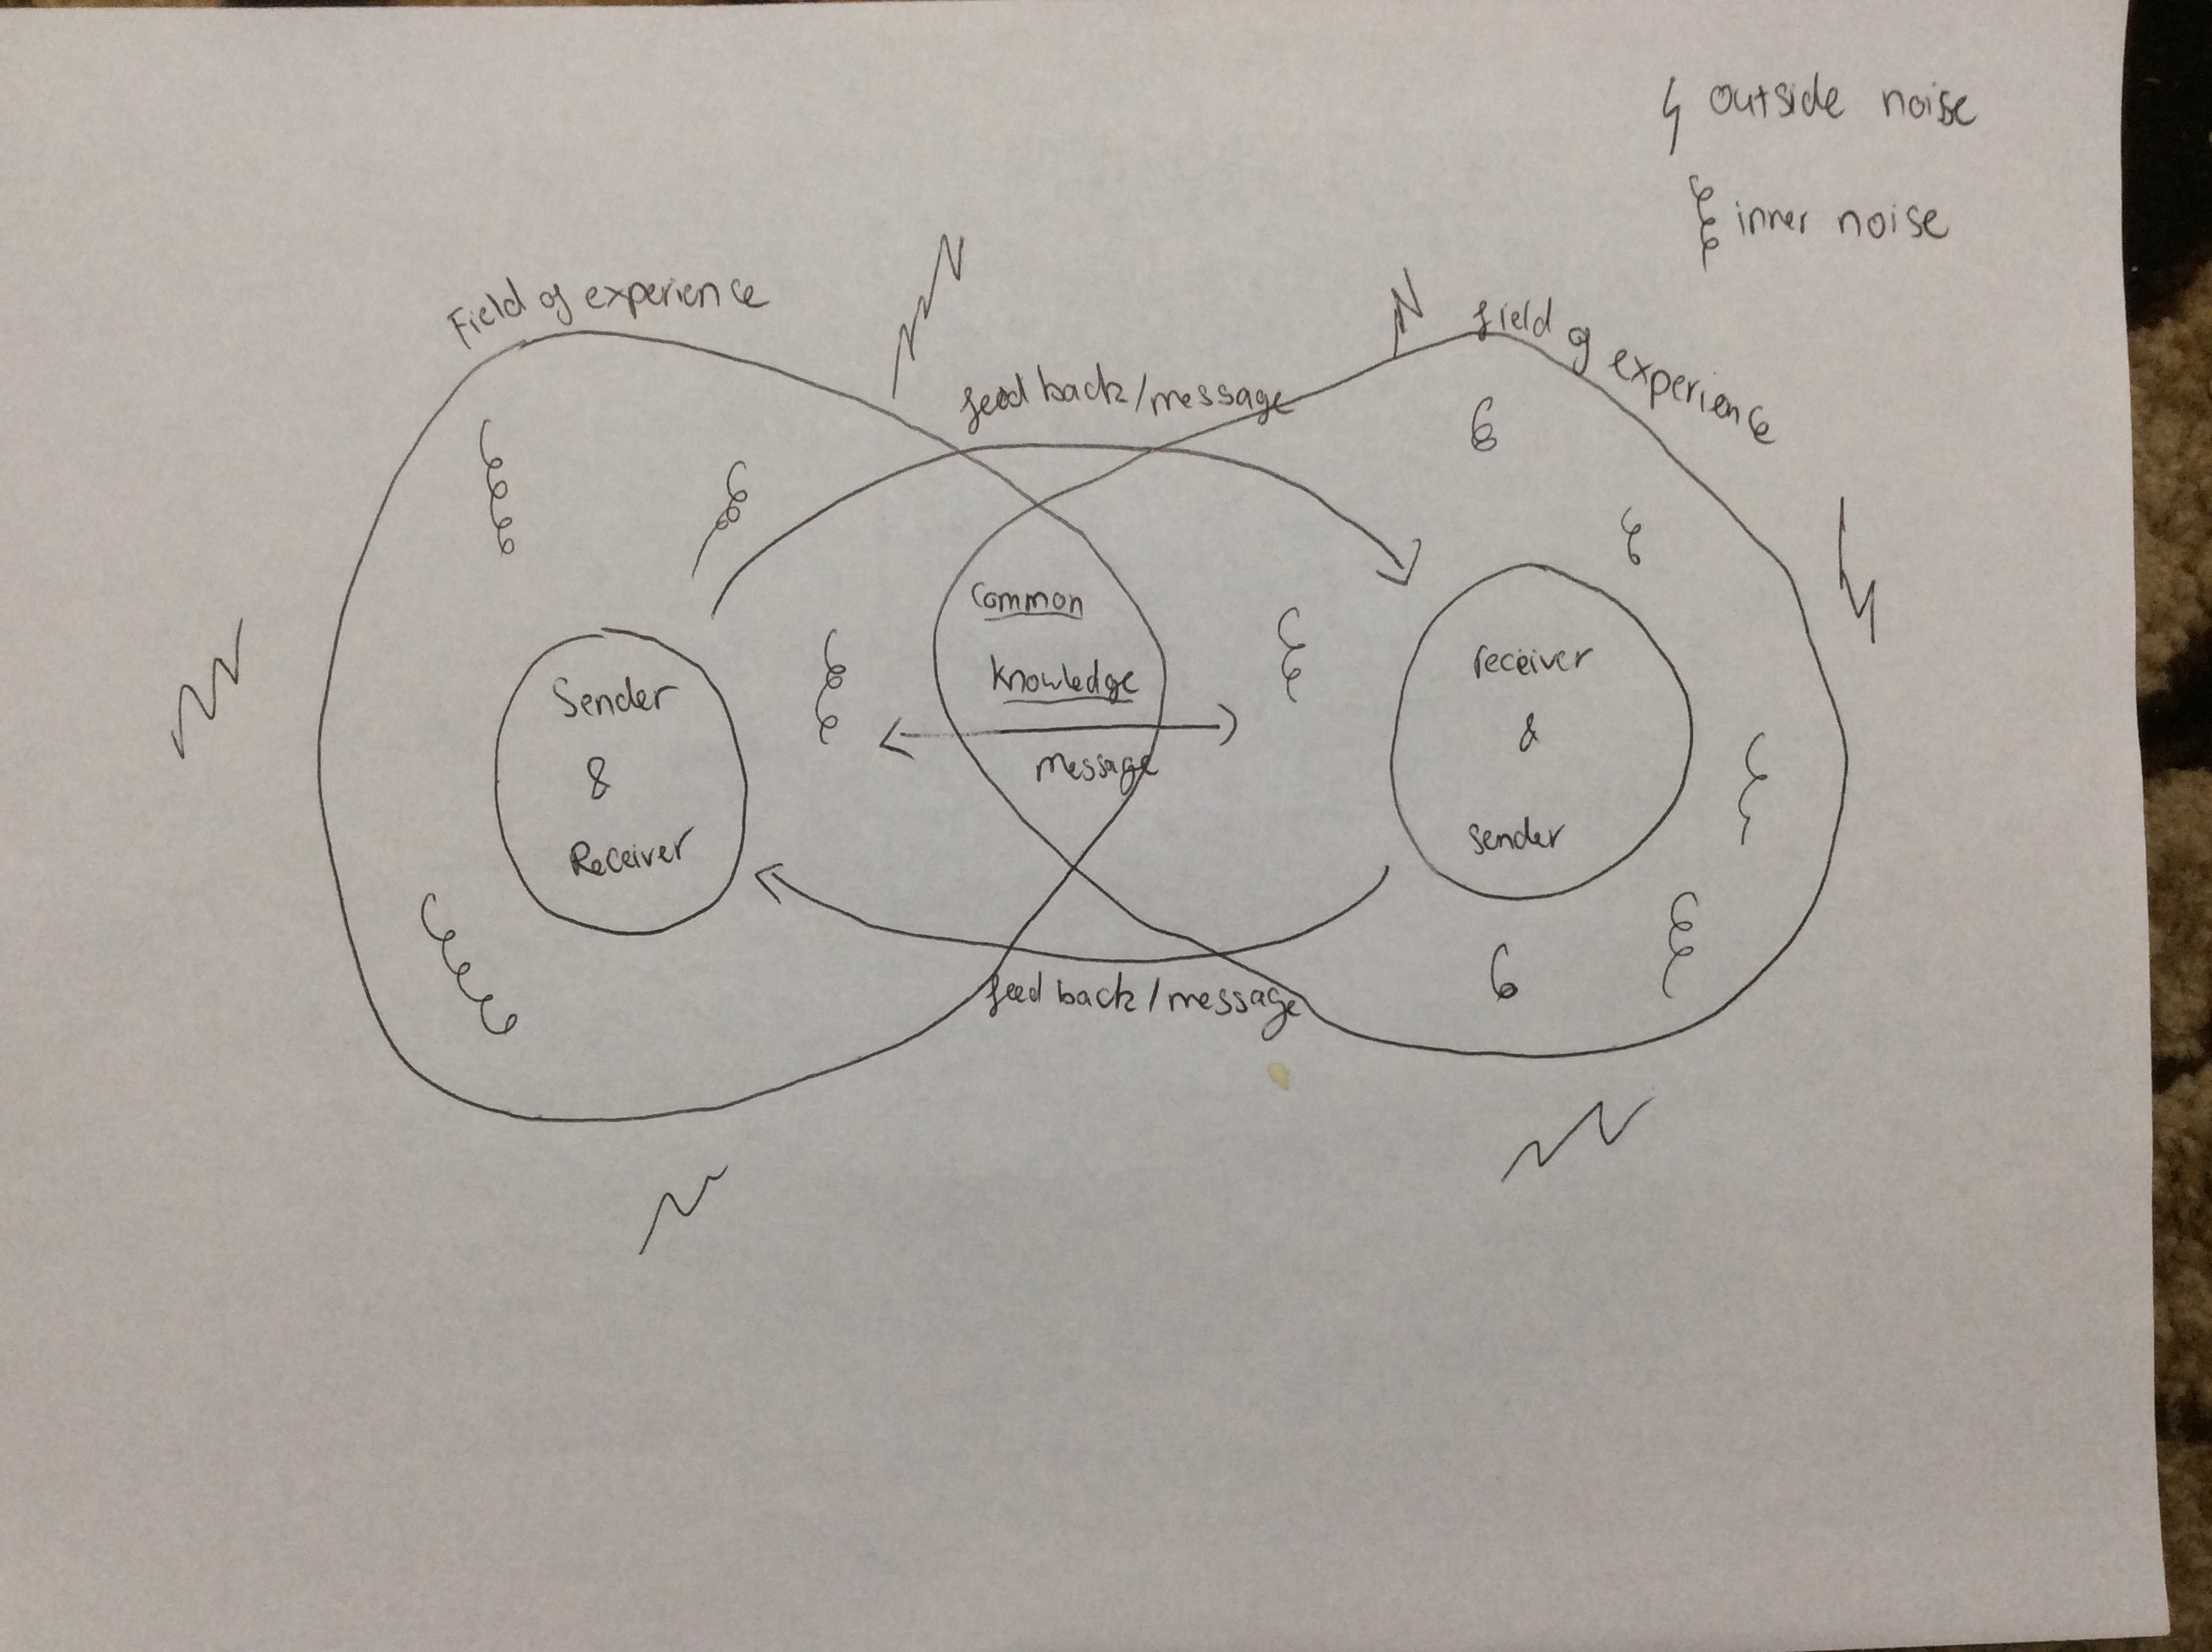 outside noise
inner noise
Field of experience
field of experience
feedback/message
Common
knowledge
message
Sender
&
Receiver
receiver
&
sender
feedback/message